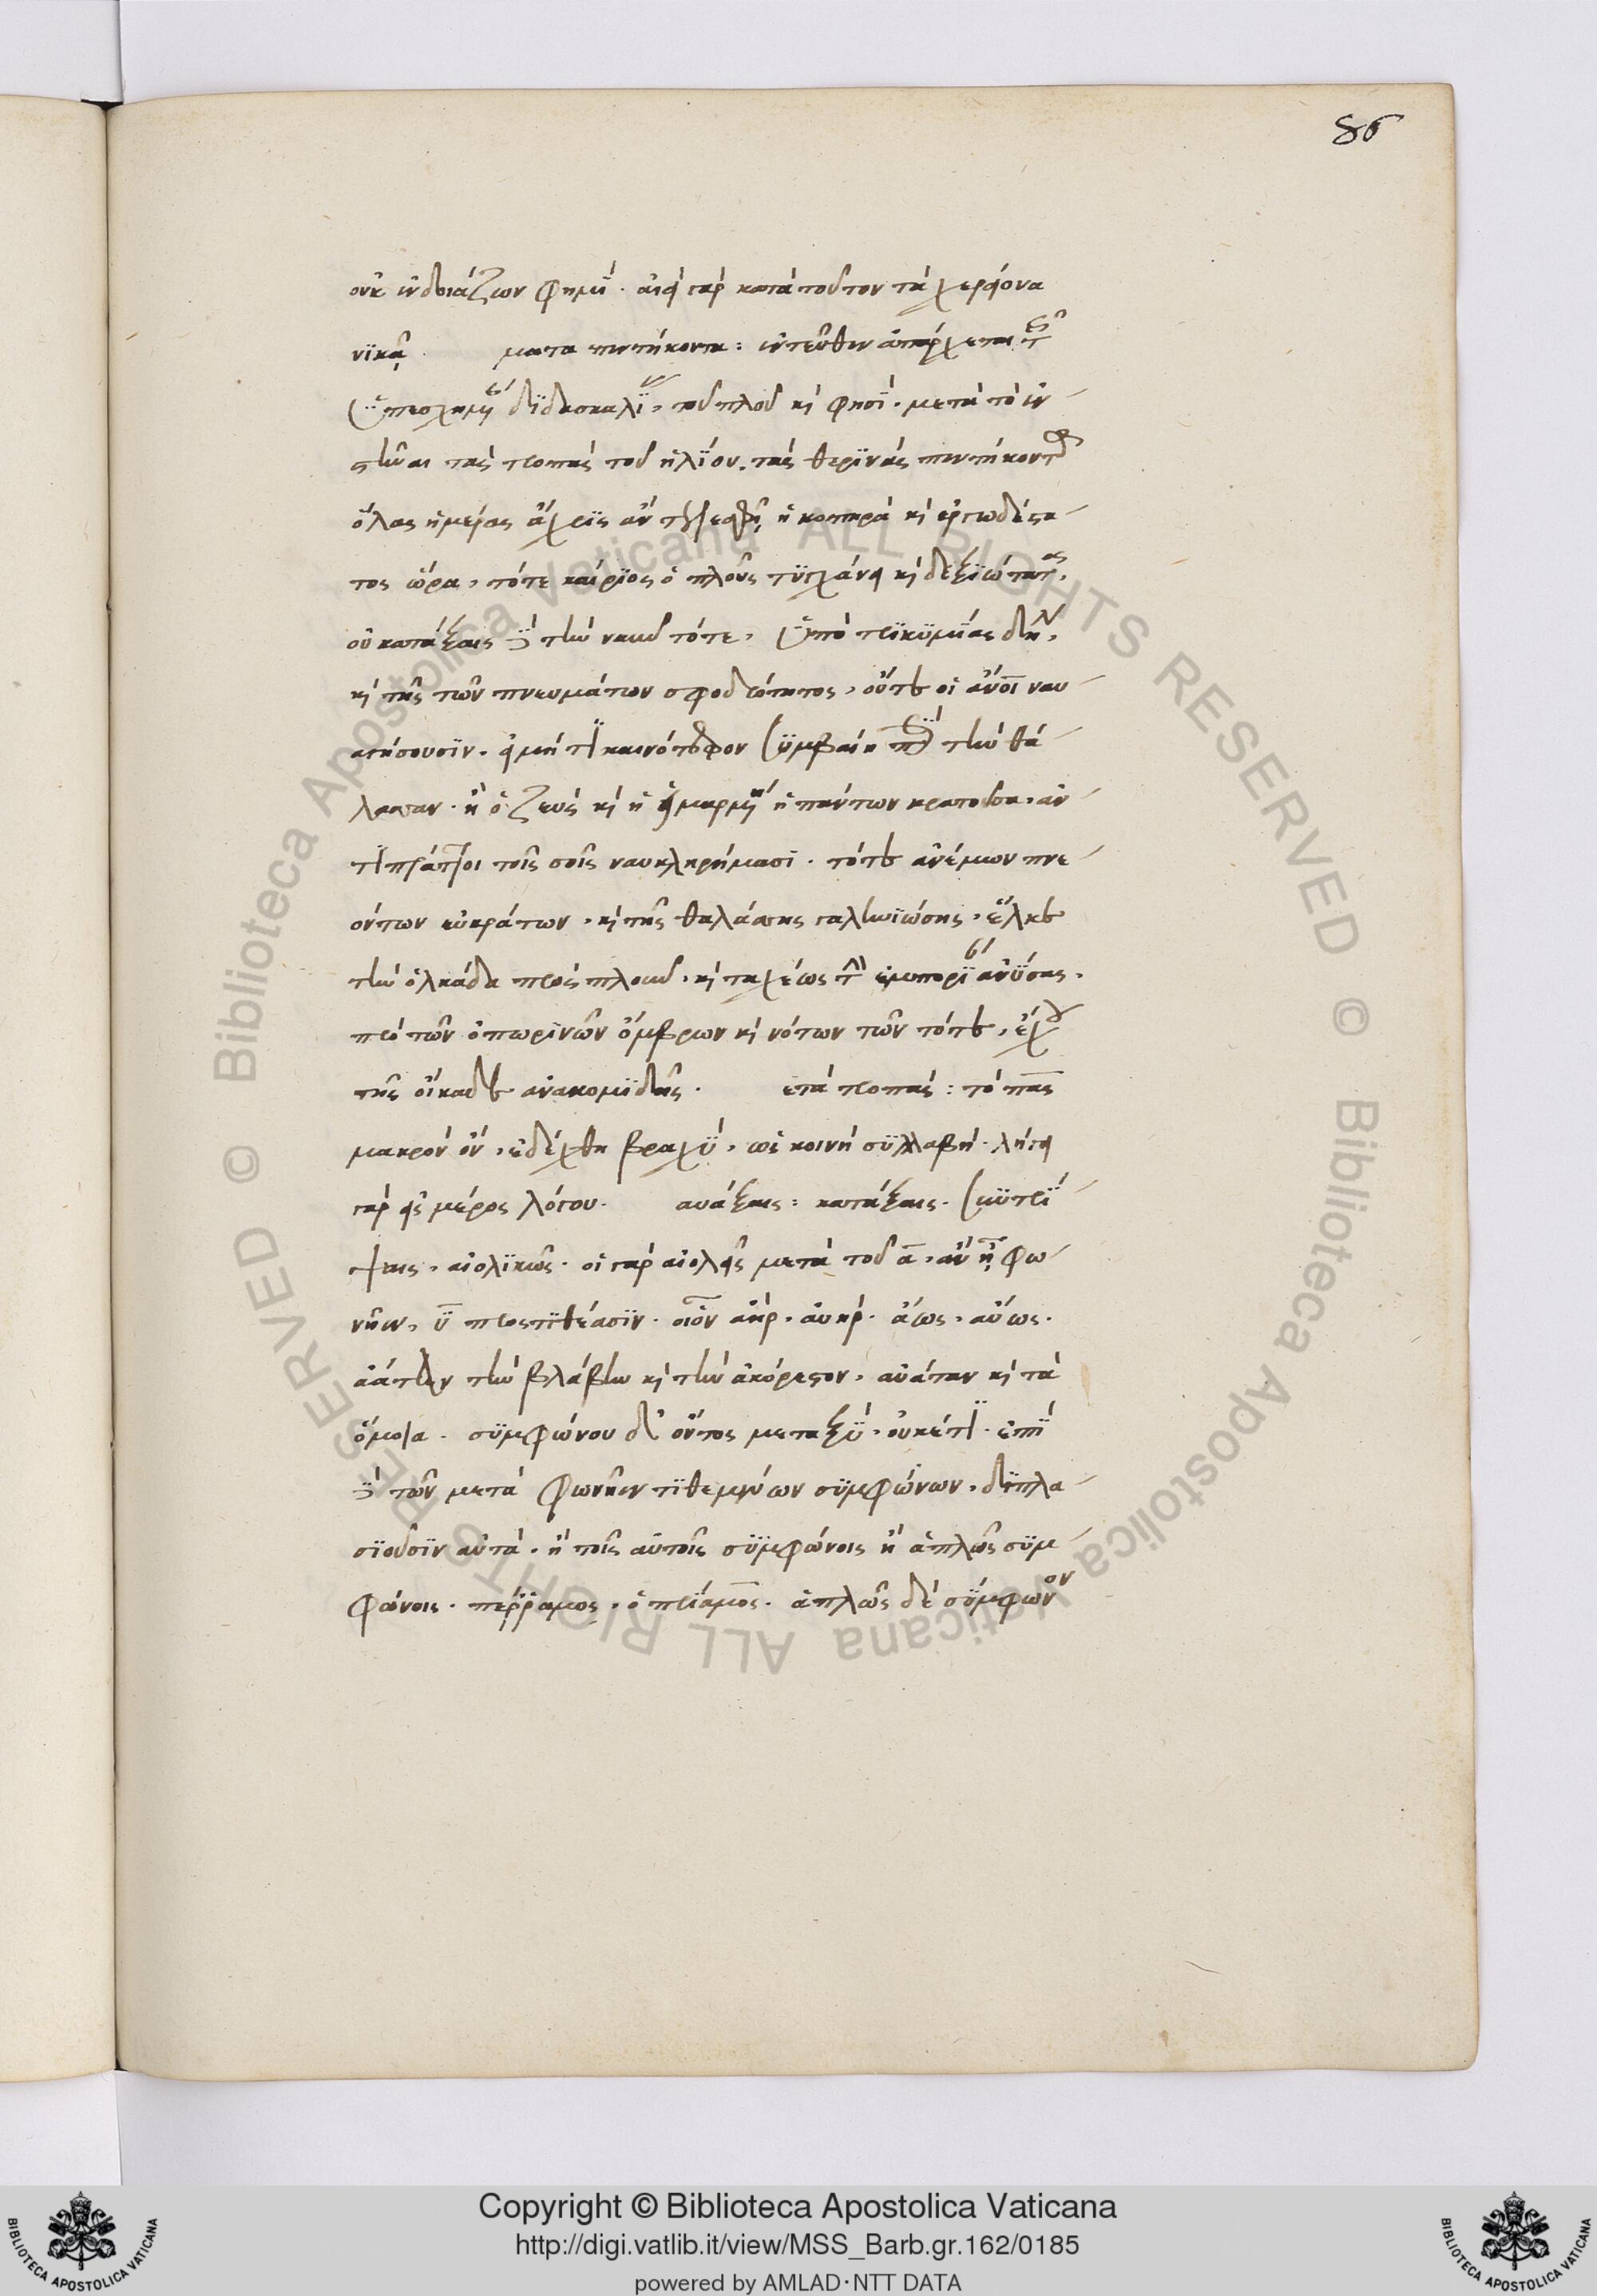 86
οὐκ ἐνδοιάζων φημί. ἀεὶ γὰρ κατὰ τοῦτον τὰ χερείονα
νικᾷ. ματα πεντήκοντα: ἐντεῦθεν ἀπάρχεται τῆς
ὑπεσχημένης διδασκαλίας τοῦ πλοῦ καὶ φησί. μετὰ τὸ ἐν
στῆναι τὰς τροπὰς τοῦ ἡλίου τὰς θερινὰς πεντήκοντα
ὅλας ἡμέρας ἄχρις ἂν ἡ καματηρὰ καὶ ἐργωδέστα
τος ὥρα, τότε καίριος ὁ πλοῦς τυγχάνει καὶ δεξιώτατος.
οὐ κατάξαις τὴν ναῦν τότε, ὑπὸ τρικυμίας
καὶ τῆς τῶν πνευμάτων σφοδρότητος, οὔτε οἱ ἄνοι ναυ
αγήσουσιν. εἰ μή τι καινότροπον συμβαίη περὶ τὴν θά
λασσαν. ἢ ὁ ζεὺς καὶ ἡ εἱμαρμένη ἡ πάντων κρατοῦσα, ἀν
τιπράττοι τοῖς σοῖς ναυκληρήμασι. τότε ἀνέμων πνε
όντων εὐκράτων, καὶ τῆς θαλάσσης γαληνιώσης, ἕλκε
τὴν ὁλκάδα πρὸς πλοῦν, καὶ ταχέως τὴν ἐμπορίαν ἀνύσας,
πρὸ τῶν ὀπωρινῶν ὄμβρων καὶ νότων τῶν τότε, ἔχου
τῆς οἴκαδε ἀνακομιδῆς. ετὰ τροπάς: τὸ πας
μακρὸν ὂν, ἐδέχθη βραχὺ, ὡς κοινὴ συλλαβή. λήγει
γὰρ εἰς μέρος λόγου. αυάξαις: κατάξαις. συντρί
ψαις, αἰολικῶς. οἱ γὰρ αἰολεῖς μετὰ τοῦ α, ἂν ᾖ φω
νῆεν, υ προστιθέασιν. οἷον ἀὴρ, αὐήρ. ἄως, αὔως.
ἀάταν τὴν βλάβην καὶ τὴν ἀκόρεστον, αὐάταν καὶ τὰ
ὅμοια. συμφώνου δ' ὄντος μεταξὺ, οὐκέτι. ἐπὶ
τῶν μετὰ φωνῆεν τιθεμένων συμφώνων, διπλα
σιοῦσιν αὐτά. ἢ τοῖς αὐτοῖς συμφώνοις ἢ ἁπλῶς συμ
φώνοις. πέρραμος, ὁ πρίαμος. ἁπλῶς δὲ σύμφωνον
Copyright © Biblioteca Apostolica Vaticana
http://digi.vatlib.it/view/MSS_Barb.gr.162/0185
powered by AMLAD·NTT DATA
BIBLIOTECA APOSTOLICA VATICANA
BIBLIOTECA APOSTOLICA VATICANA
© Biblioteca Apostolica Vaticana ALL RIGHTS RESERVED
© Biblioteca Apostolica Vaticana ALL RIGHTS RESERVED